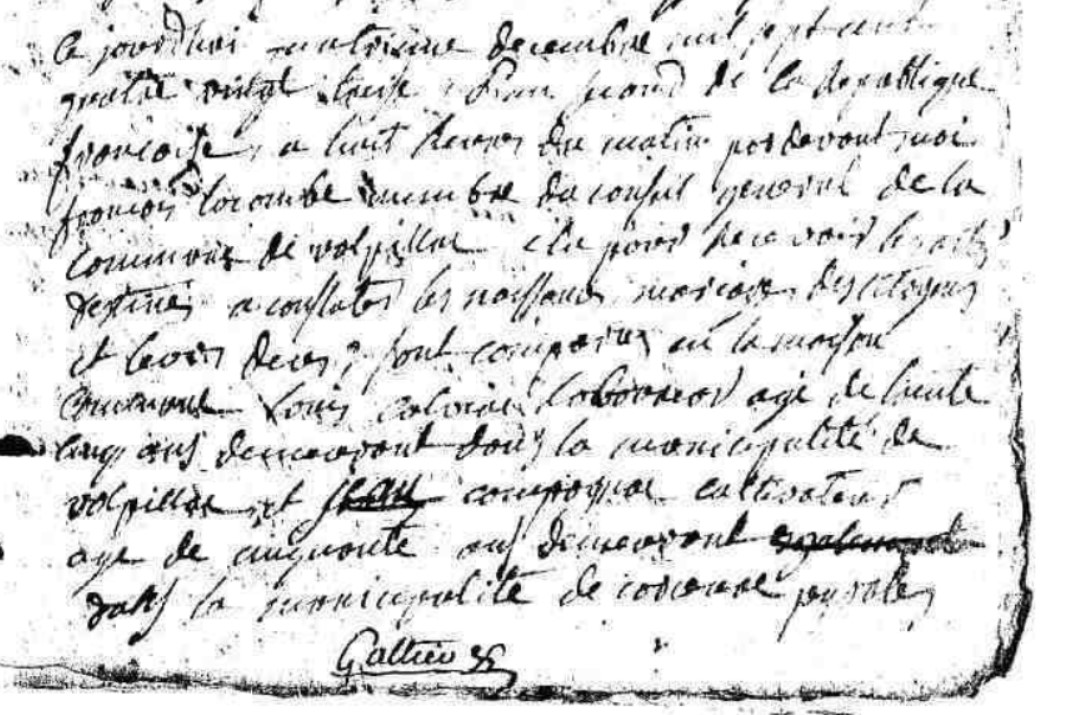 ce jourdhui decembre mil sept cent
quatre vingt treise lan second de la republique
francoise, a huit heures du matin pardevant moi
francois lacombe membre du conseil general de la
commune de volpillac elu pour recevoir les actes
destines a constater les naissances mariages des citoyens
et leurs deces, sont comparus en la maison
commune louis laboureur age de trente
cinq ans demeurant dans la municipalite de
volpillac et jean cultivateur
age de cinquante ans demeurant egalement
dans la municipalite de
Galtier